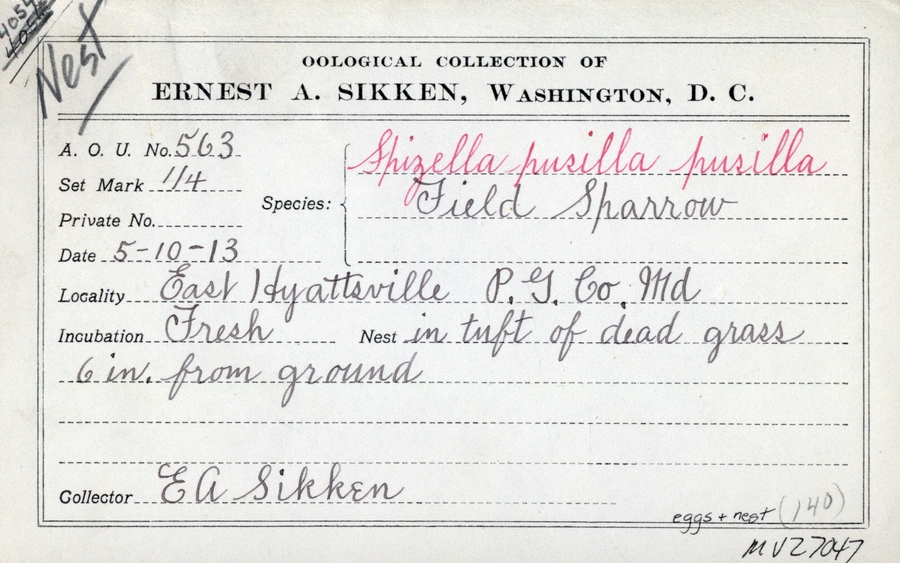 Nest
OOLOGICAL COLLECTION OF
ERNEST A. SIKKEN, WASHINGTON, D. C.
A. O. U. No. 563
Set Mark 1/4
Private No.
Date 5-10-13
Species: Spizella pusilla pusilla
Field Sparrow
Locality East Hyattsville P. G. Co. Md
Incubation Fresh Nest in tuft of dead grass
6 in. from ground
Collector E A Sikken
eggs + nest (140)
MVZ7047